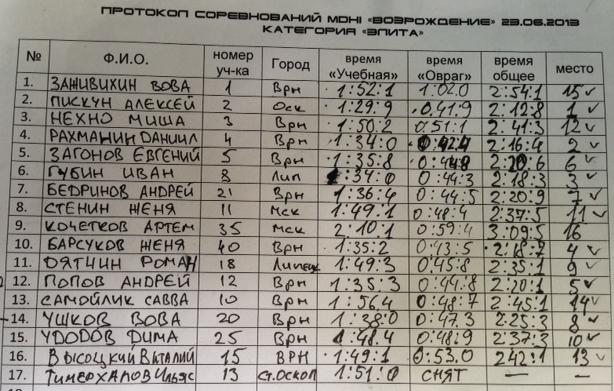 ПРОТОКОЛ СОРЕВНОВАНИЙ MDHI «ВОЗРОЖДЕНИЕ» 23.06.2013
КАТЕГОРИЯ «ЭЛИТА»
№ Ф.И.О. номер уч-ка Город время «Учебная» время «Овраг» время общее место
1. ЗАЖИВИХИН ВОВА 1 Врн 1:52:1 1:02:0 2:54:1 15
2. ПИСКУН АЛЕКСЕЙ 2 Оск 1:29:9 0:41:9 2:12:8 1
3. НЕХНО МИША 3 Врн 1:50:2 0:51:1 2:41:3 12
4. РАХМАНИН ДАНИИЛ 4 Врн 1:34:0 0:42:4 2:16:4 2
5. ЗАГОНОВ ЕВГЕНИЙ 5 Врн 1:35:8 2:20:6 6
6. ГУБИН ИВАН 8 Лип 1:34:0 0:44:3 2:18:3 3
7. БЕДРИНОВ АНДРЕЙ 21 Врн 1:36:4 0:44:5 2:20:9 7
8. СТЕНИН ЖЕНЯ 11 Мск 1:49:1 0:48:4 2:37:5 11
9. КОЧЕТКОВ АРТЕМ 35 Мск 2:10:1 0:59:4 3:09:5 16
10. БАРСУКОВ ЖЕНЯ 40 Врн 1:35:2 0:43:5 2:18:7 4
11. ДЯТЧИН РОМАН 18 Липецк 1:49:3 0:45:8 2:35:1 9
12. ПОПОВ АНДРЕЙ 12 Врн 1:35:3 0:44:8 2:20:1 5
13. САМОЙЛИК САВВА 10 Врн 1:56:4 0:48:7 2:45:1 14
14. УШКОВ ВОВА 20 Врн 1:38:0 0:47:3 2:25:3 8
15. УДОДОВ ДИМА 25 Врн 1:48:4 0:48:9 2:37:3 10
16. ВЫСОЦКИЙ ВИТАЛИЙ 15 ВРН 1:49:1 0:53:0 2:42:1 13
17. ТИМЕРХАНОВ Ильяс 13 Ст.Оскол 1:51:0 СНЯТ — —